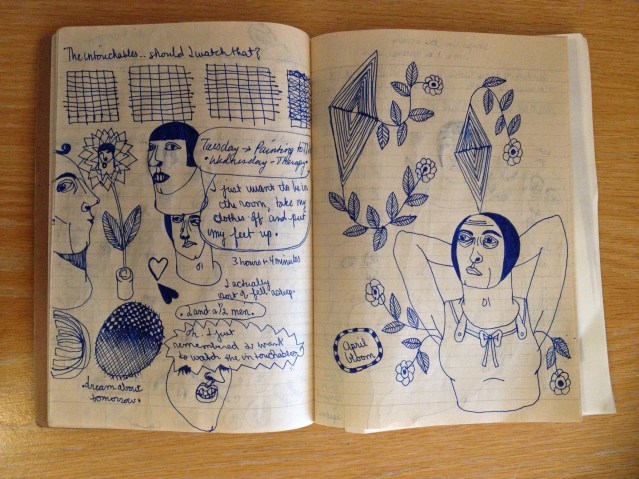 The intouchables... should I watch that?
Tuesday → Painting to
• Wednesday - Therapy •
I just want to be in
the room, take my
clothes off and put
my feet up.
3 hours + 4 minutes
I actually
sort of fell asleep.
• 2 and a 1/2 men. •
Oh. I just
remembered I want
to watch the intouchables
• dream about
tomorrow •
April
bloom